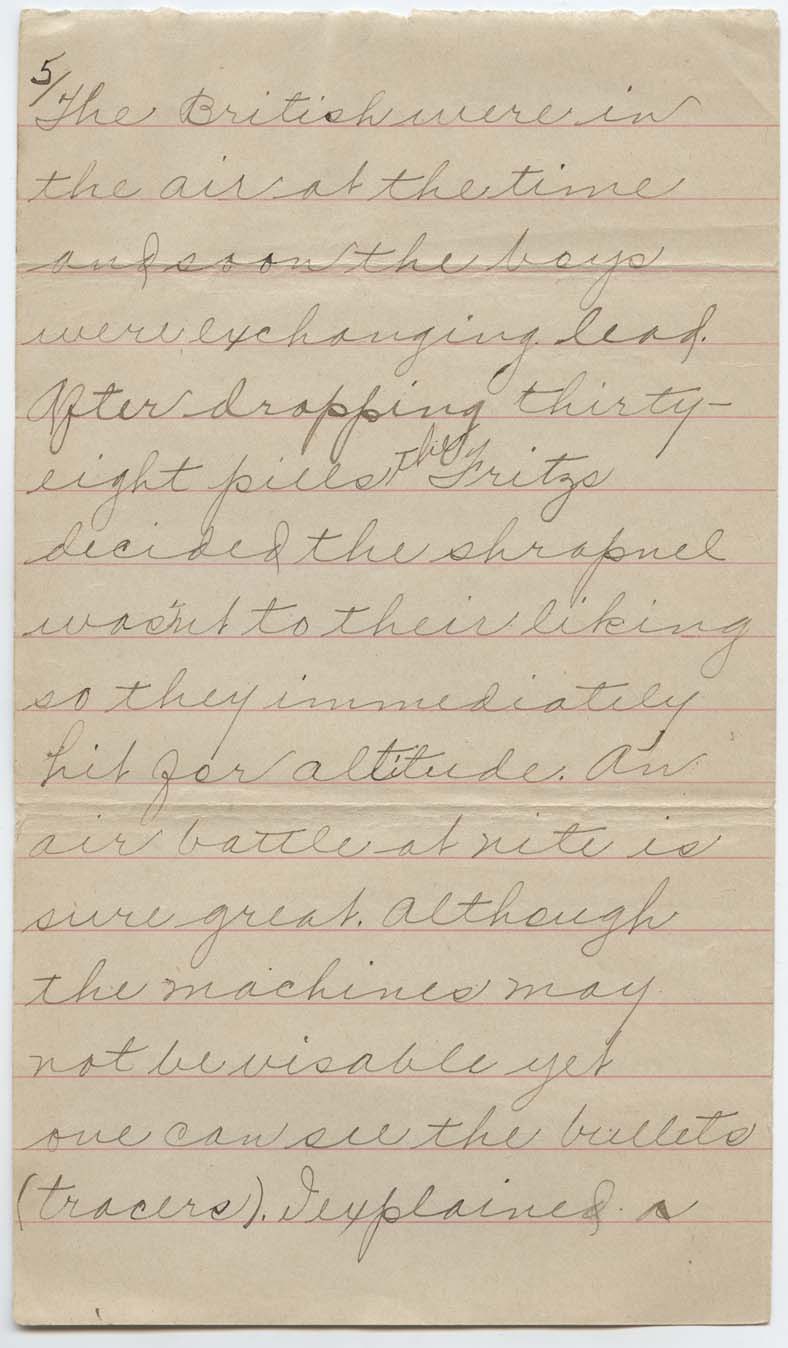 5/
The British were in
the air at the time
and soon the boys
were exchanging lead.
After dropping thirty-
eight pills the Fritzs
decided the shrapnel
wasn't to their liking
so they immediately
hit for altitude. An
air battle at nite is
sure great. Although
the machines may
not be visable yet
one can see the bullets
(tracers). I explained a